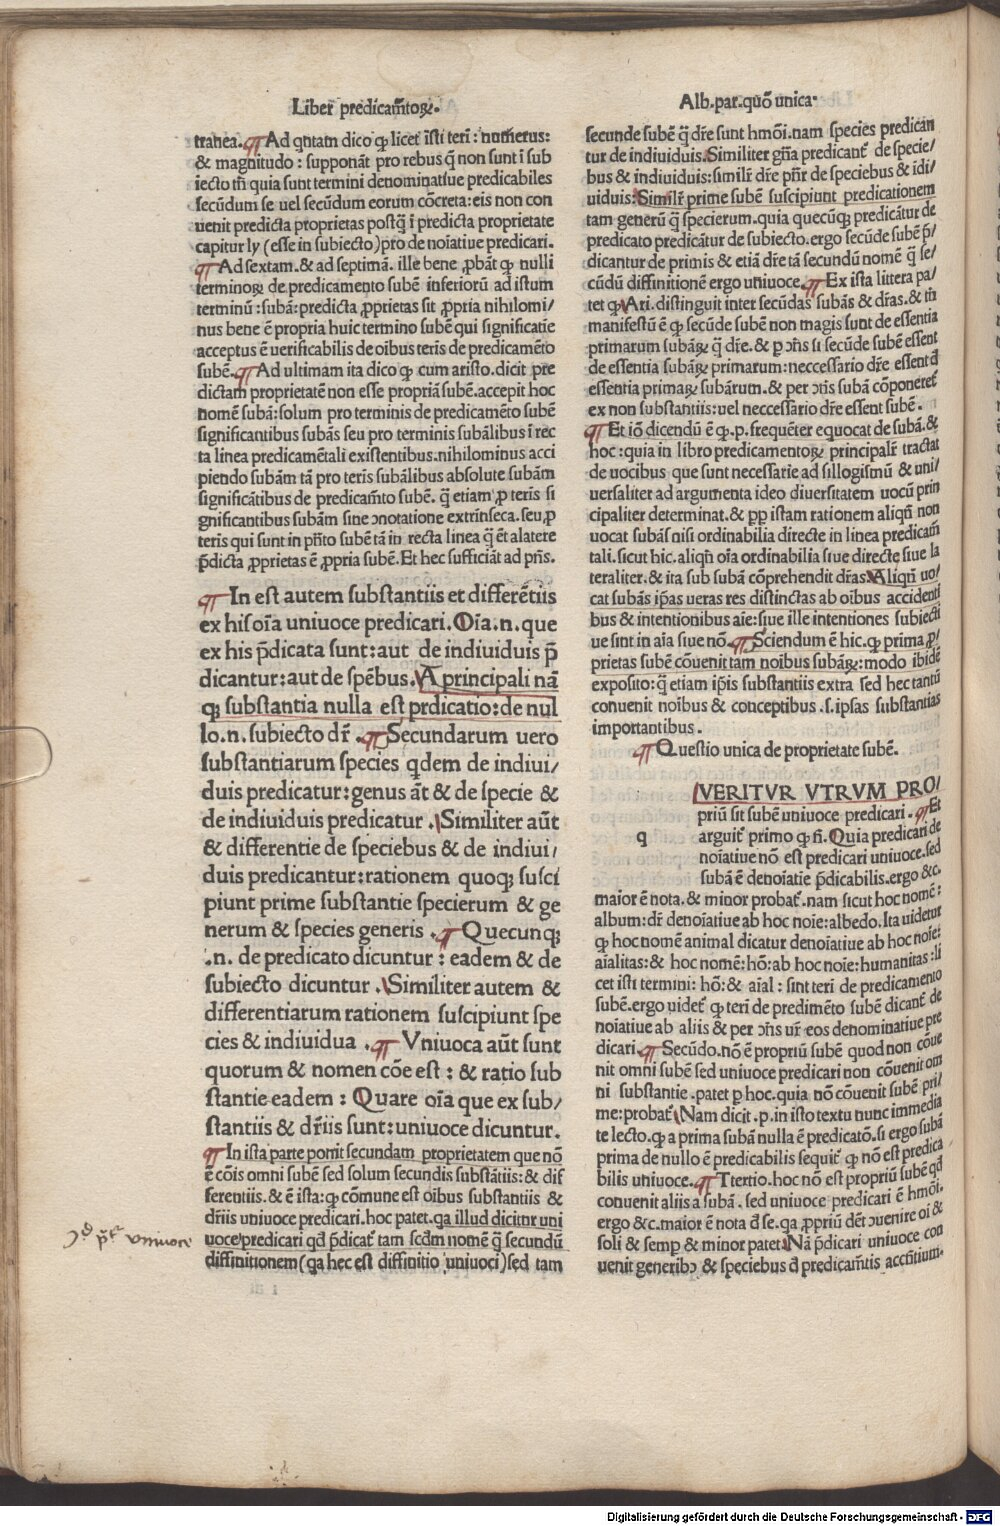 Liber predicam̄toꝝ.
tranea.¶ Ad q̄ntam dico ꝙ licet īsti teri: numerus:
& magnitudo: supponāt pro rebus q̄ non sunt ī sub
iecto tn̄ quia sunt termini denominatiue predicabiles
secūdum se uel secūdum eorum cōcreta: eis non con
uenit predicta proprietas postq̄ ī predicta proprietate
capitur ly (esse in subiecto) pro denoīatiue predicari.
¶ Ad sextam. & ad septimā. ille bene ꝓbāt ꝙ nulli
terminoꝝ de predicamento subē inferiorū ad istum
terminū: subā: predicta ꝓprietas sit ꝓpria nihilomi/
nus bene ē propria huic termino subē qui significatie
acceptus ē uerificabilis de oībus teris de predicamēto
subē.¶ Ad ultimam ita dico ꝙ cum aristo. dicit pre
dictam proprietatē non esse propriā subē. accepit hoc
nomē subā: solum pro terminis de predicamēto subē
significantibus subās seu pro terminis subālibus ī rec
ta linea predicamētali existentibus. nihilominus acci
piendo subām tā pro teris subālibus absolute subām
significātibus de predicam̄to subē. q̄ etiam ꝓ teris si
gnificantibus subām sine ↄnotatione extrīnseca. seu ꝓ
teris qui sunt in pn̄to subē tā in recta linea q̄ ēt alatere
p̄dicta ꝓprietas ē ꝓpria subē. Et hec sufficiāt ad pn̄s.
¶ In est autem substantiis et differētiis
ex his oīa uniuoce predicari. Oīa .n. que
ex his p̄dicata sunt: aut de indiuiduis p̄
dicantur: aut de spēbus. A principali nā
qꝫ substantia nulla est prdicatio: de nul
lo .n. subiecto dr̄.¶ Secundarum uero
substantiarum species q̄dem de indiui/
duis predicatur: genus āt & de specie &
de indiuiduis predicatur. Similiter aūt
& differentie de speciebus & de indiui/
duis predicantur: rationem quoqꝫ susci
piunt prime substantie specierum & ge
nerum & species generis.¶ Quecunqꝫ
.n. de predicato dicuntur: eadem & de
subiecto dicuntur. Similiter autem &
differentiarum rationem suscipiunt spe
cies & indiuidua.¶ Vniuoca aūt sunt
quorum & nomen cōe est: & ratio sub
stantie eadem: Quare oīa que ex sub/
stantiis & dr̄iis sunt: uniuoce dicuntur.
¶ In ista parte ponit secundam proprietatem que nō
ē cōis omni subē sed solum secundis substātiis: & dif
ferentiis. & ē ista: ꝙ cōmune est oībus substantiis &
dr̄iis uniuoce predicari. hoc patet. qa illud dicitur uni
uoce predicari qd̄ p̄dicat̄ tam scd̄m nomē q̄ secundū
diffinitionem (qa hec est diffinitio uniuoci) sed tam
Alb. par. quō unica.
secunde subē q̄ dr̄e sunt hmōi. nam species predican
tur de indiuiduis. Similiter gn̄a predicant̄ de specie/
bus & indiuiduis: similr̄ dr̄e pn̄r de speciebus & idi/
uiduis: Similr̄ prime subē suscipiunt predicationem
tam generū q̄ specierum. quia quecūqꝫ predicātur de
predicato predicātur de subiecto. ergo secūde subē p̄/
dicantur de primis & etiā dr̄e tā secundū nomē q̄ se/
cūdū diffinitionē ergo uniuoce.¶ Ex ista littera pa/
tet ꝙ Ari. distinguit inter secūdas subās & dr̄as. & tn̄
manifestū ē ꝙ secūde subē non magis sunt de essentia
primarum subāꝝ q̄ dr̄e. & p ↄn̄s si secūde subē essent
de essentia subāꝝ primarum: neccessario dr̄e essent d̄
essentia primaꝝ subārum. & per ↄn̄s subā cōponeret̄
ex non substantiis: uel neccessario dr̄e essent subē.
¶ Et iō dicendū ē ꝙ .p. frequēter equocat de subā. &
hoc: quia in libro predicamentoꝝ principalr̄ tractat
de uocibus que sunt necessarie ad sillogismū & uni/
uersaliter ad argumenta ideo diuersitatem uocū prin
cipaliter determinat. & pp̄ istam rationem aliqn̄ non
uocat subās nisi ordinabilia directe in linea predicam̄
tali. sicut hic. aliqn̄ oīa ordinabilia siue directe siue la
teraliter. & ita sub subā cōprehendit dr̄as. Aliqn̄ uo/
cat subās ip̄as ueras res distinctas ab oībus accidenti
bus & intentionibus aīe: siue ille intentiones subiecti
ue sint in aīa siue nō.¶ Sciendum ē hic. ꝙ prima ꝓ/
prietas subē cōuenit tam noībus subāꝝ: modo ibidē
exposito: q̄ etiam ip̄is substantiis extra sed hec tantū
conuenit noībus & conceptibus .s. ipsas substantias
importantibus.
¶ Questio unica de proprietate subē.
q
VERITVR VTRVM PRO/
priū sit subē uniuoce predicari.¶ Et
arguit̄ primo ꝙ n̄. Quia predicari de
noīatiue nō est predicari uniuoce. sed
subā ē denoīatie p̄dicabilis. ergo &c.
maior ē nota. & minor probat̄. nam sicut hoc nomē:
album: dr̄ denoīatiue ab hoc noīe: albedo. Ita uidetur
ꝙ hoc nomē animal dicatur denoīatiue ab hoc noīe:
aīalitas: & hoc nomē: hō: ab hoc noīe: humanitas: li
cet isti termini: hō: & aīal: sint teri de predicamento
subē. ergo uidet̄ ꝙ teri de predimēto subē dicant̄ de
noīatiue ab aliis & per ↄn̄s ur̄ eos denominatiue pre
dicari.¶ Secūdo. nō ē propriū subē quod non cōue
nit omni subē sed uniuoce predicari non cōuenit om
ni substantie. patet p hoc. quia nō cōuenit subē pri/
me: probat̄. Nam dicit .p. in isto textu nunc immedia
te lecto. ꝙ a prima subā nulla ē predicatō. si ergo subā
prima de nullo ē predicabilis sequit̄ ꝙ nō est predica
bilis uniuoce.¶ Ttertio. hoc nō est propriū subē qd̄
conuenit aliis a subā. sed uniuoce predicari ē hmōi.
ergo &c. maior ē nota d̄ se. qa ꝓpriū dēt ↄuenire oī &
soli & semp & minor patet. Nā p̄dicari uniuoce con
uenit generibↄ & speciebus d̄ predicam̄tis accn̄tium.